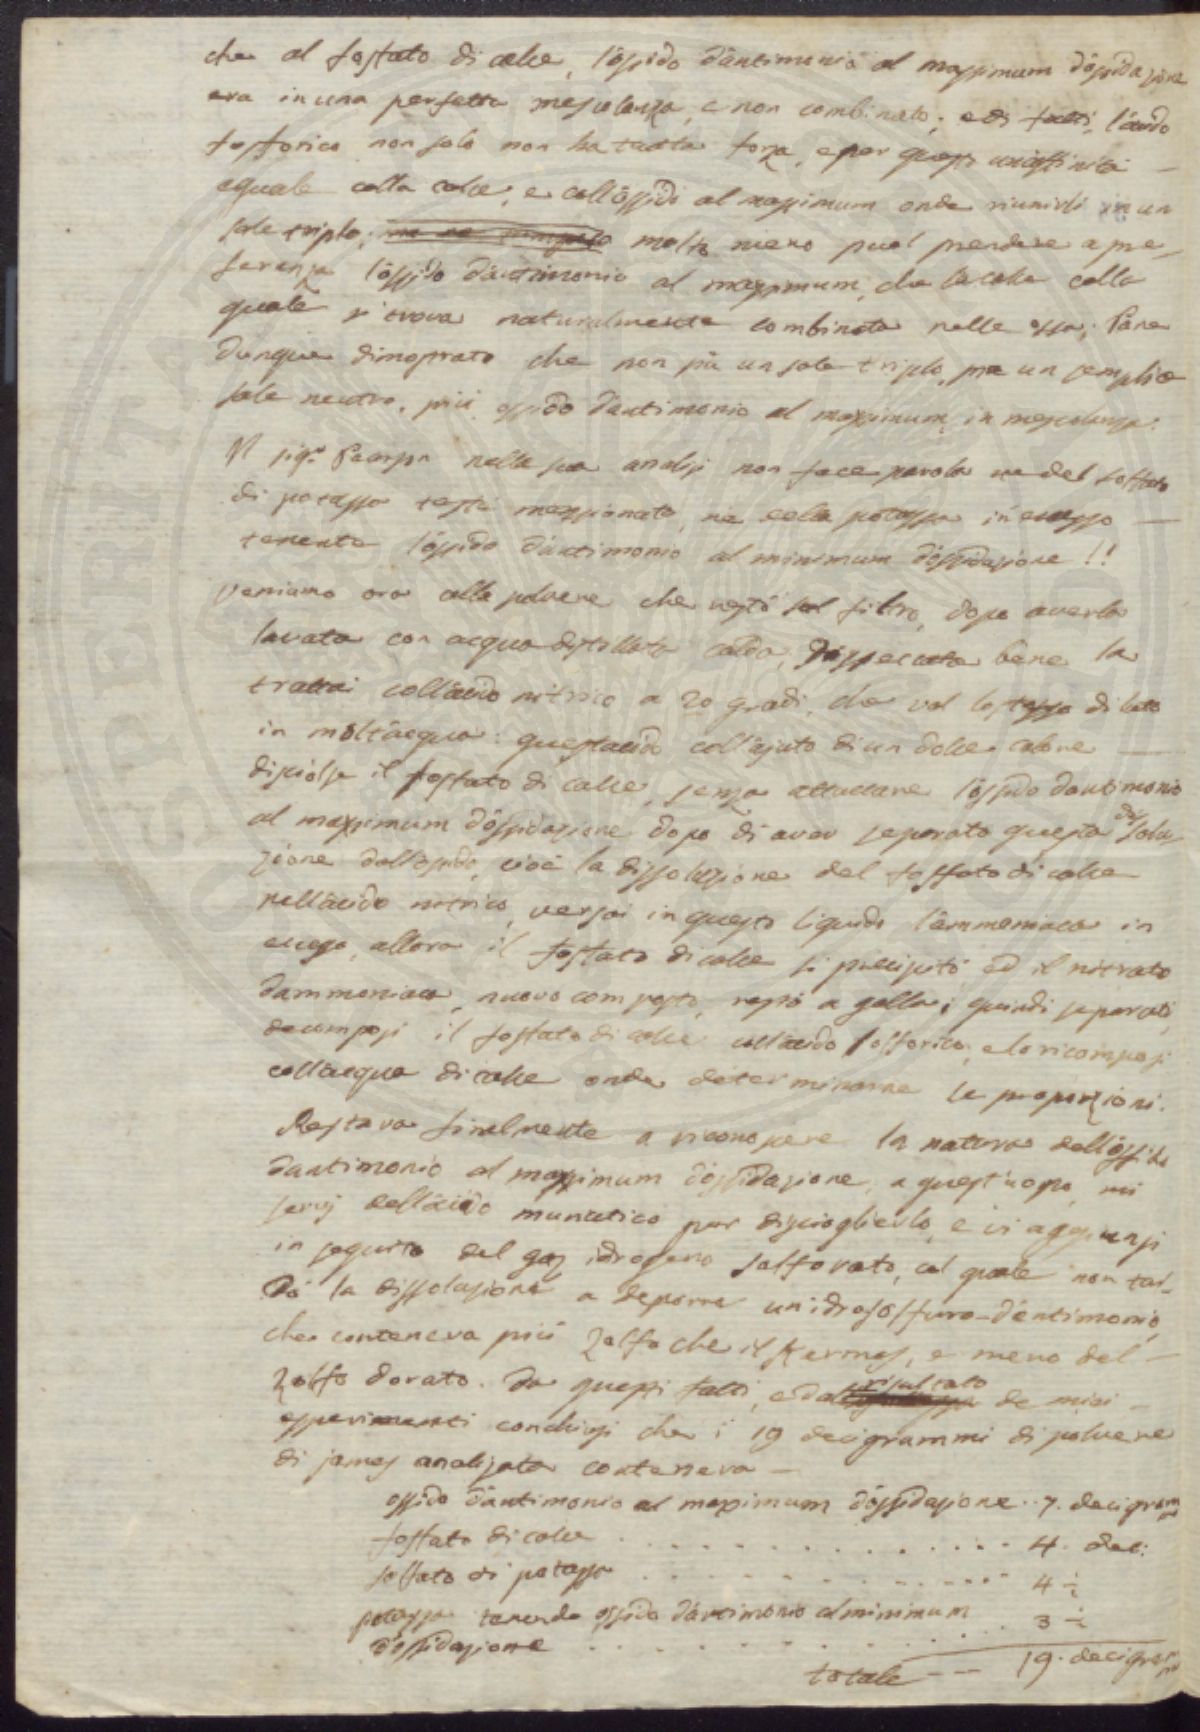 che al fosfato di calce, l'ossido d'antimonio al maximum d'ossidazione
era in una perfetta mescolanza, e non combinato; e di fatti, l'acido
fosforico non solo non ha tutta forza, e per questi un'affinità —
eguale colla calce, e coll'ossido al maximum onde riunirli in un
sale triplo; molto meno puol prendere a pre-
ferenza l'ossido d'antimonio al maximum, che la calce colla
quale si trova naturalmente combinata nelle ossa; Pare
dunque dimostrato che non più un sale triplo, ma un semplice
sale neutro, più ossido d'antimonio al maximum in mescolanza.
Il sig.r Pearson nella sua analisi non fece parola ne del solfato
di potassa testè menzionato, ne della potassa in eccesso —
tenente l'ossido d'antimonio al minimum d'ossidazione!!
Veniamo ora alla polvere che restò sul filtro, dopo averla
lavata con acqua distillata calda, disseccata bene la
trattai coll'acido nitrico a 20 gradi, che val lo stesso dilato
in molt'acqua: quest'acido coll'ajuto di un dolce calore —
disciolse il fosfato di calce, senza attaccare l'ossido d'antimonio
al maximum d'ossidazione dopo di aver separato questa dis/solu-
zione dall'ossido, cioè la dissoluzione del fosfato di calce
nell'acido nitrico, versai in questo liquido l'ammoniaca in
eccesso, allora il fosfato di calce si precipitò, ed il nitrato
d'ammoniaca, nuovo composto, restò a galla; quindi separati,
decomposi il fosfato di calce coll'acido solforico, e lo ricomposi
coll'acqua di calce onde determinarne le proporzioni.
Restava finalmente a riconoscere la natura dell'ossido
d'antimonio al maximum d'ossidazione, a quest'uopo mi
servij dell'acido muriatico per discioglierlo, e vi aggiunsi
in seguito del gaz idrogeno solforato, al quale non tar-
dò la dissoluzione a deporre un idrosolfuro d'antimonio,
che conteneva più zolfo che il Kermes, e meno del —
zolfo dorato. Da questi fatti, e dal risultato de miei —
esperimenti conchiusi che i 19 decigrammi di polvere
di james analizata conteneva —
ossido d'antimonio al maximum d'ossidazione .. 7. decigram
fosfato di calce . . . . . . . . . . . . . . 4. deci:
solfato di potassa . . . . . . . . . . . . . 4 ½
potassa tenendo ossido d'antimonio al minimum
d'ossidazione . . . . . . . . . . . . . . 3 ½
totale — — 19. decigram